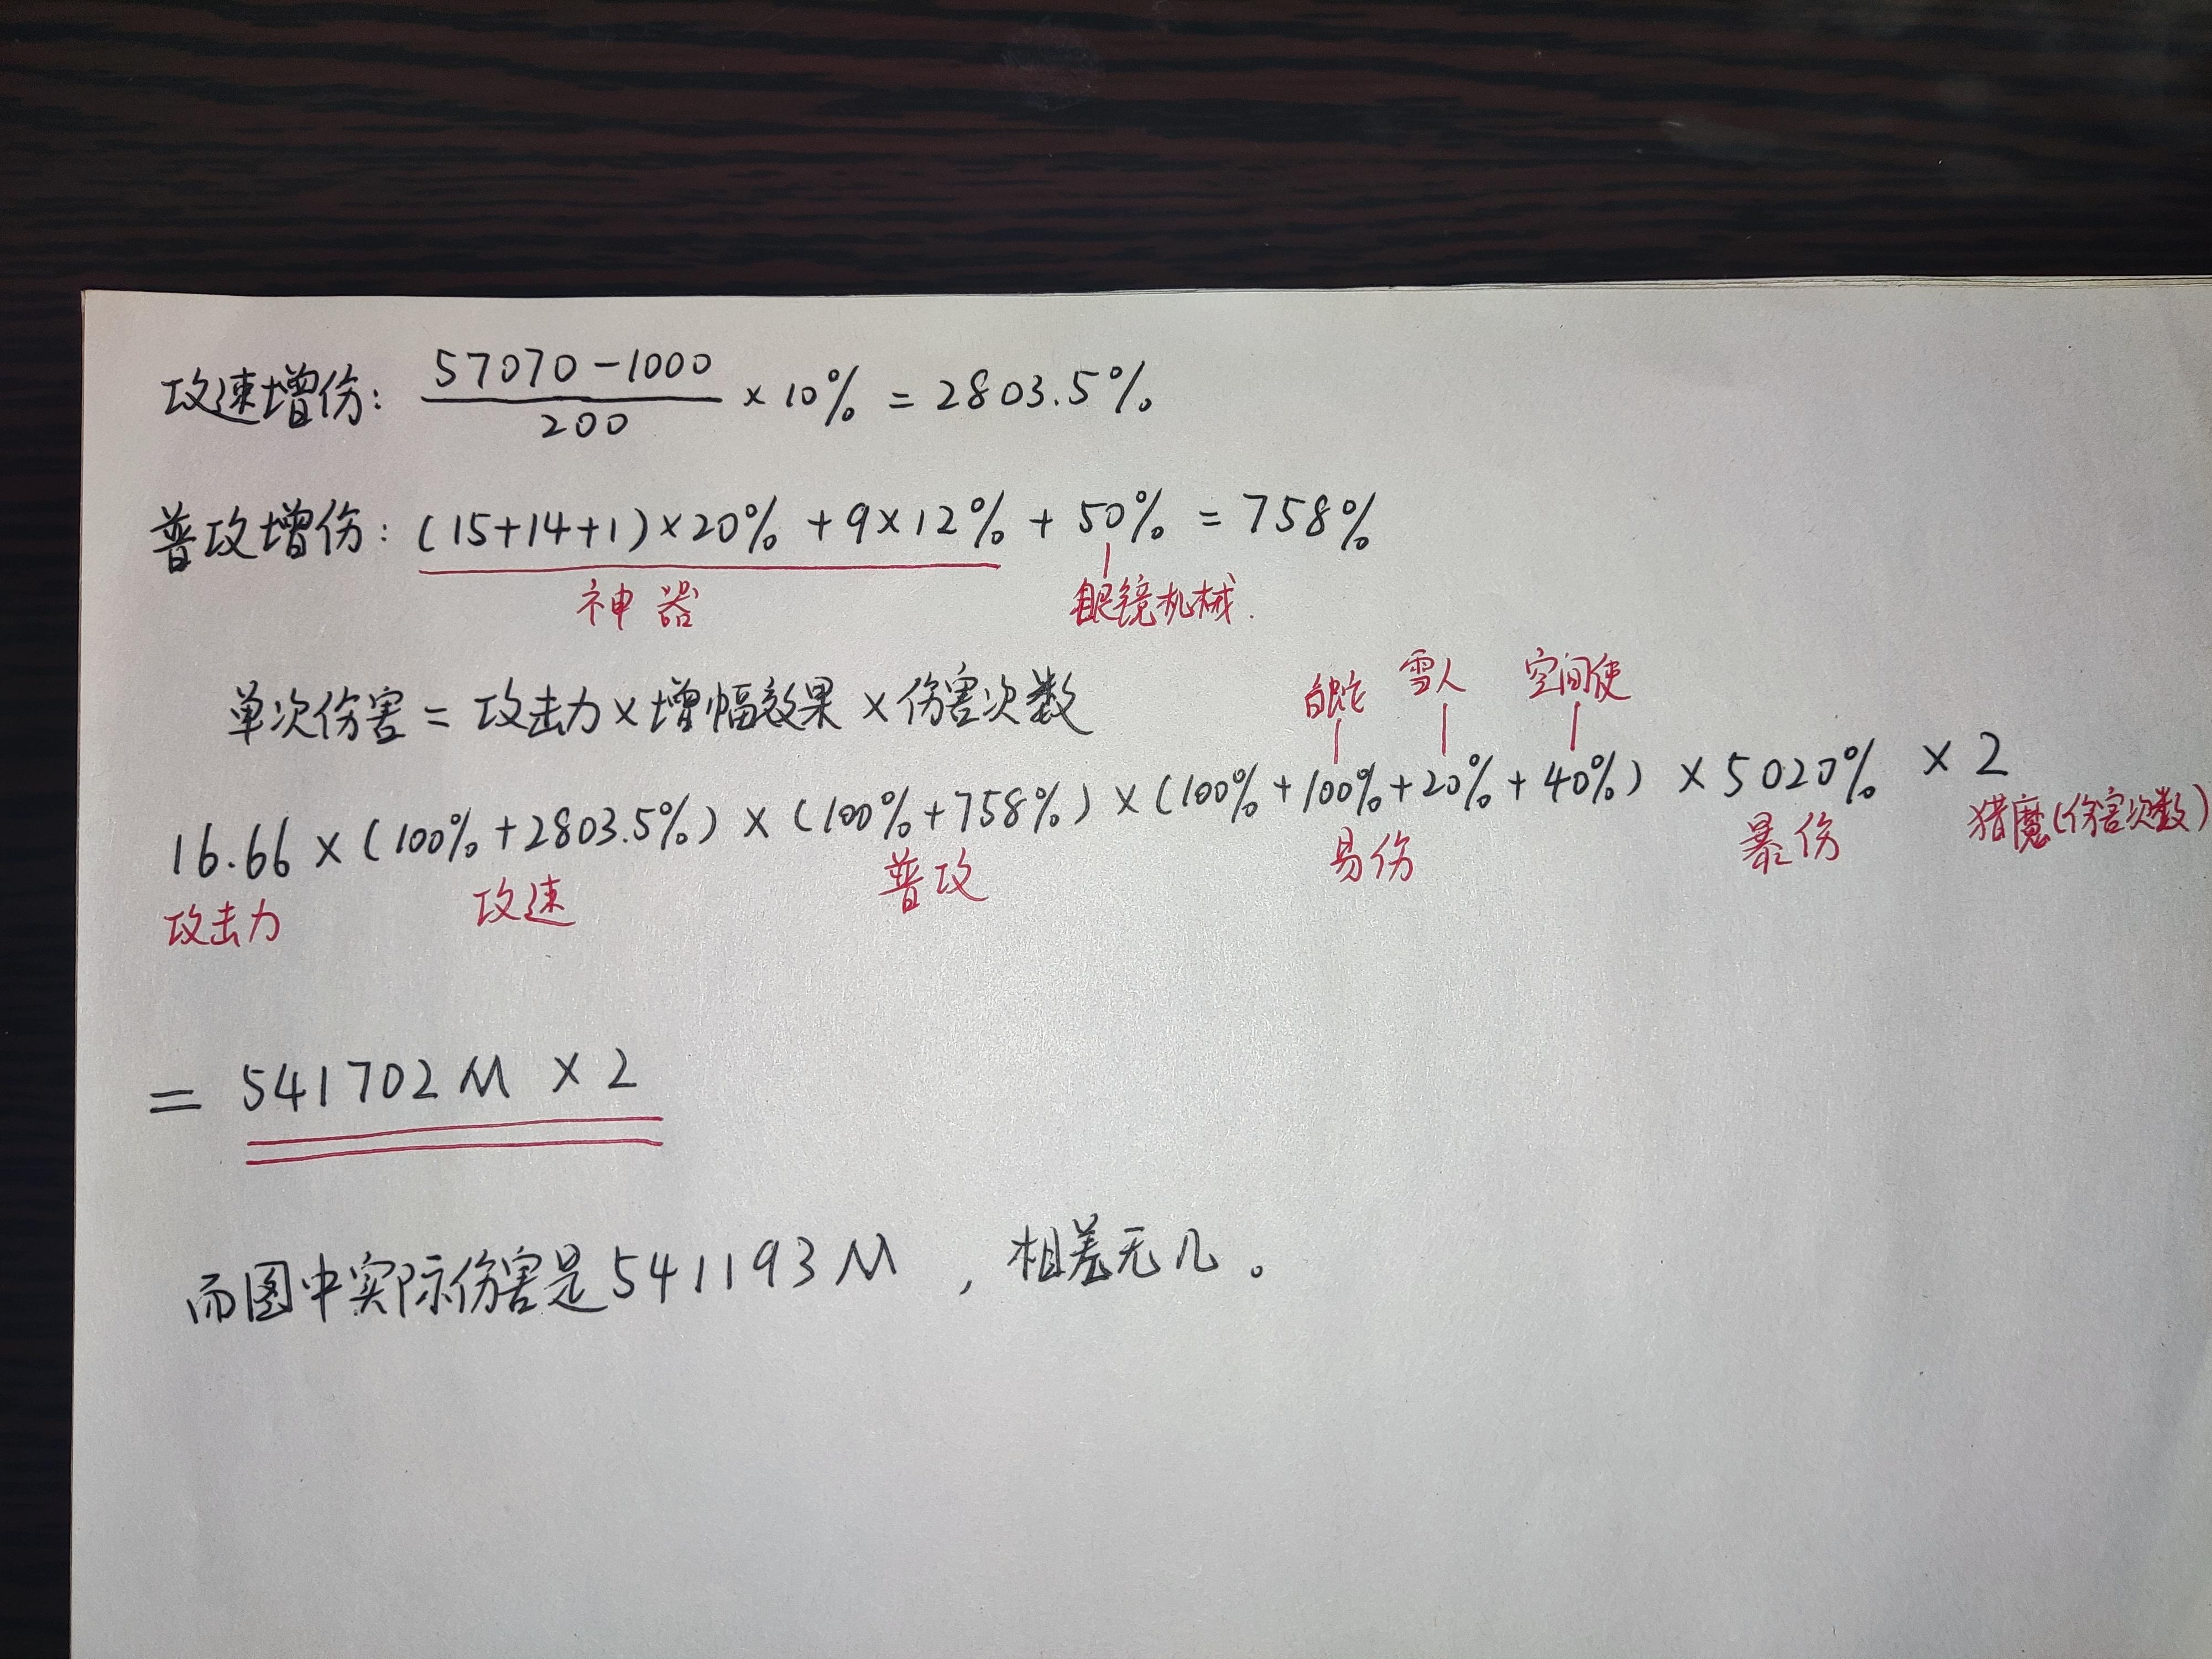 攻速增伤: (57070-1000)/200 ×10% = 2803.5%
普攻增伤: (15+14+1)×20% + 9×12% + 50% = 758%
神器 眼镜机械.
白蛇 雪人 空间使
单次伤害 = 攻击力×增幅效果×伤害次数
16.66 × (100%+2803.5%) × (100%+758%) × (100%+100%+20%+40%) × 5020% × 2
攻击力 攻速 普攻 易伤 暴伤 猎魔(伤害次数)
= 541702M × 2
而图中实际伤害是541193M , 相差无几。